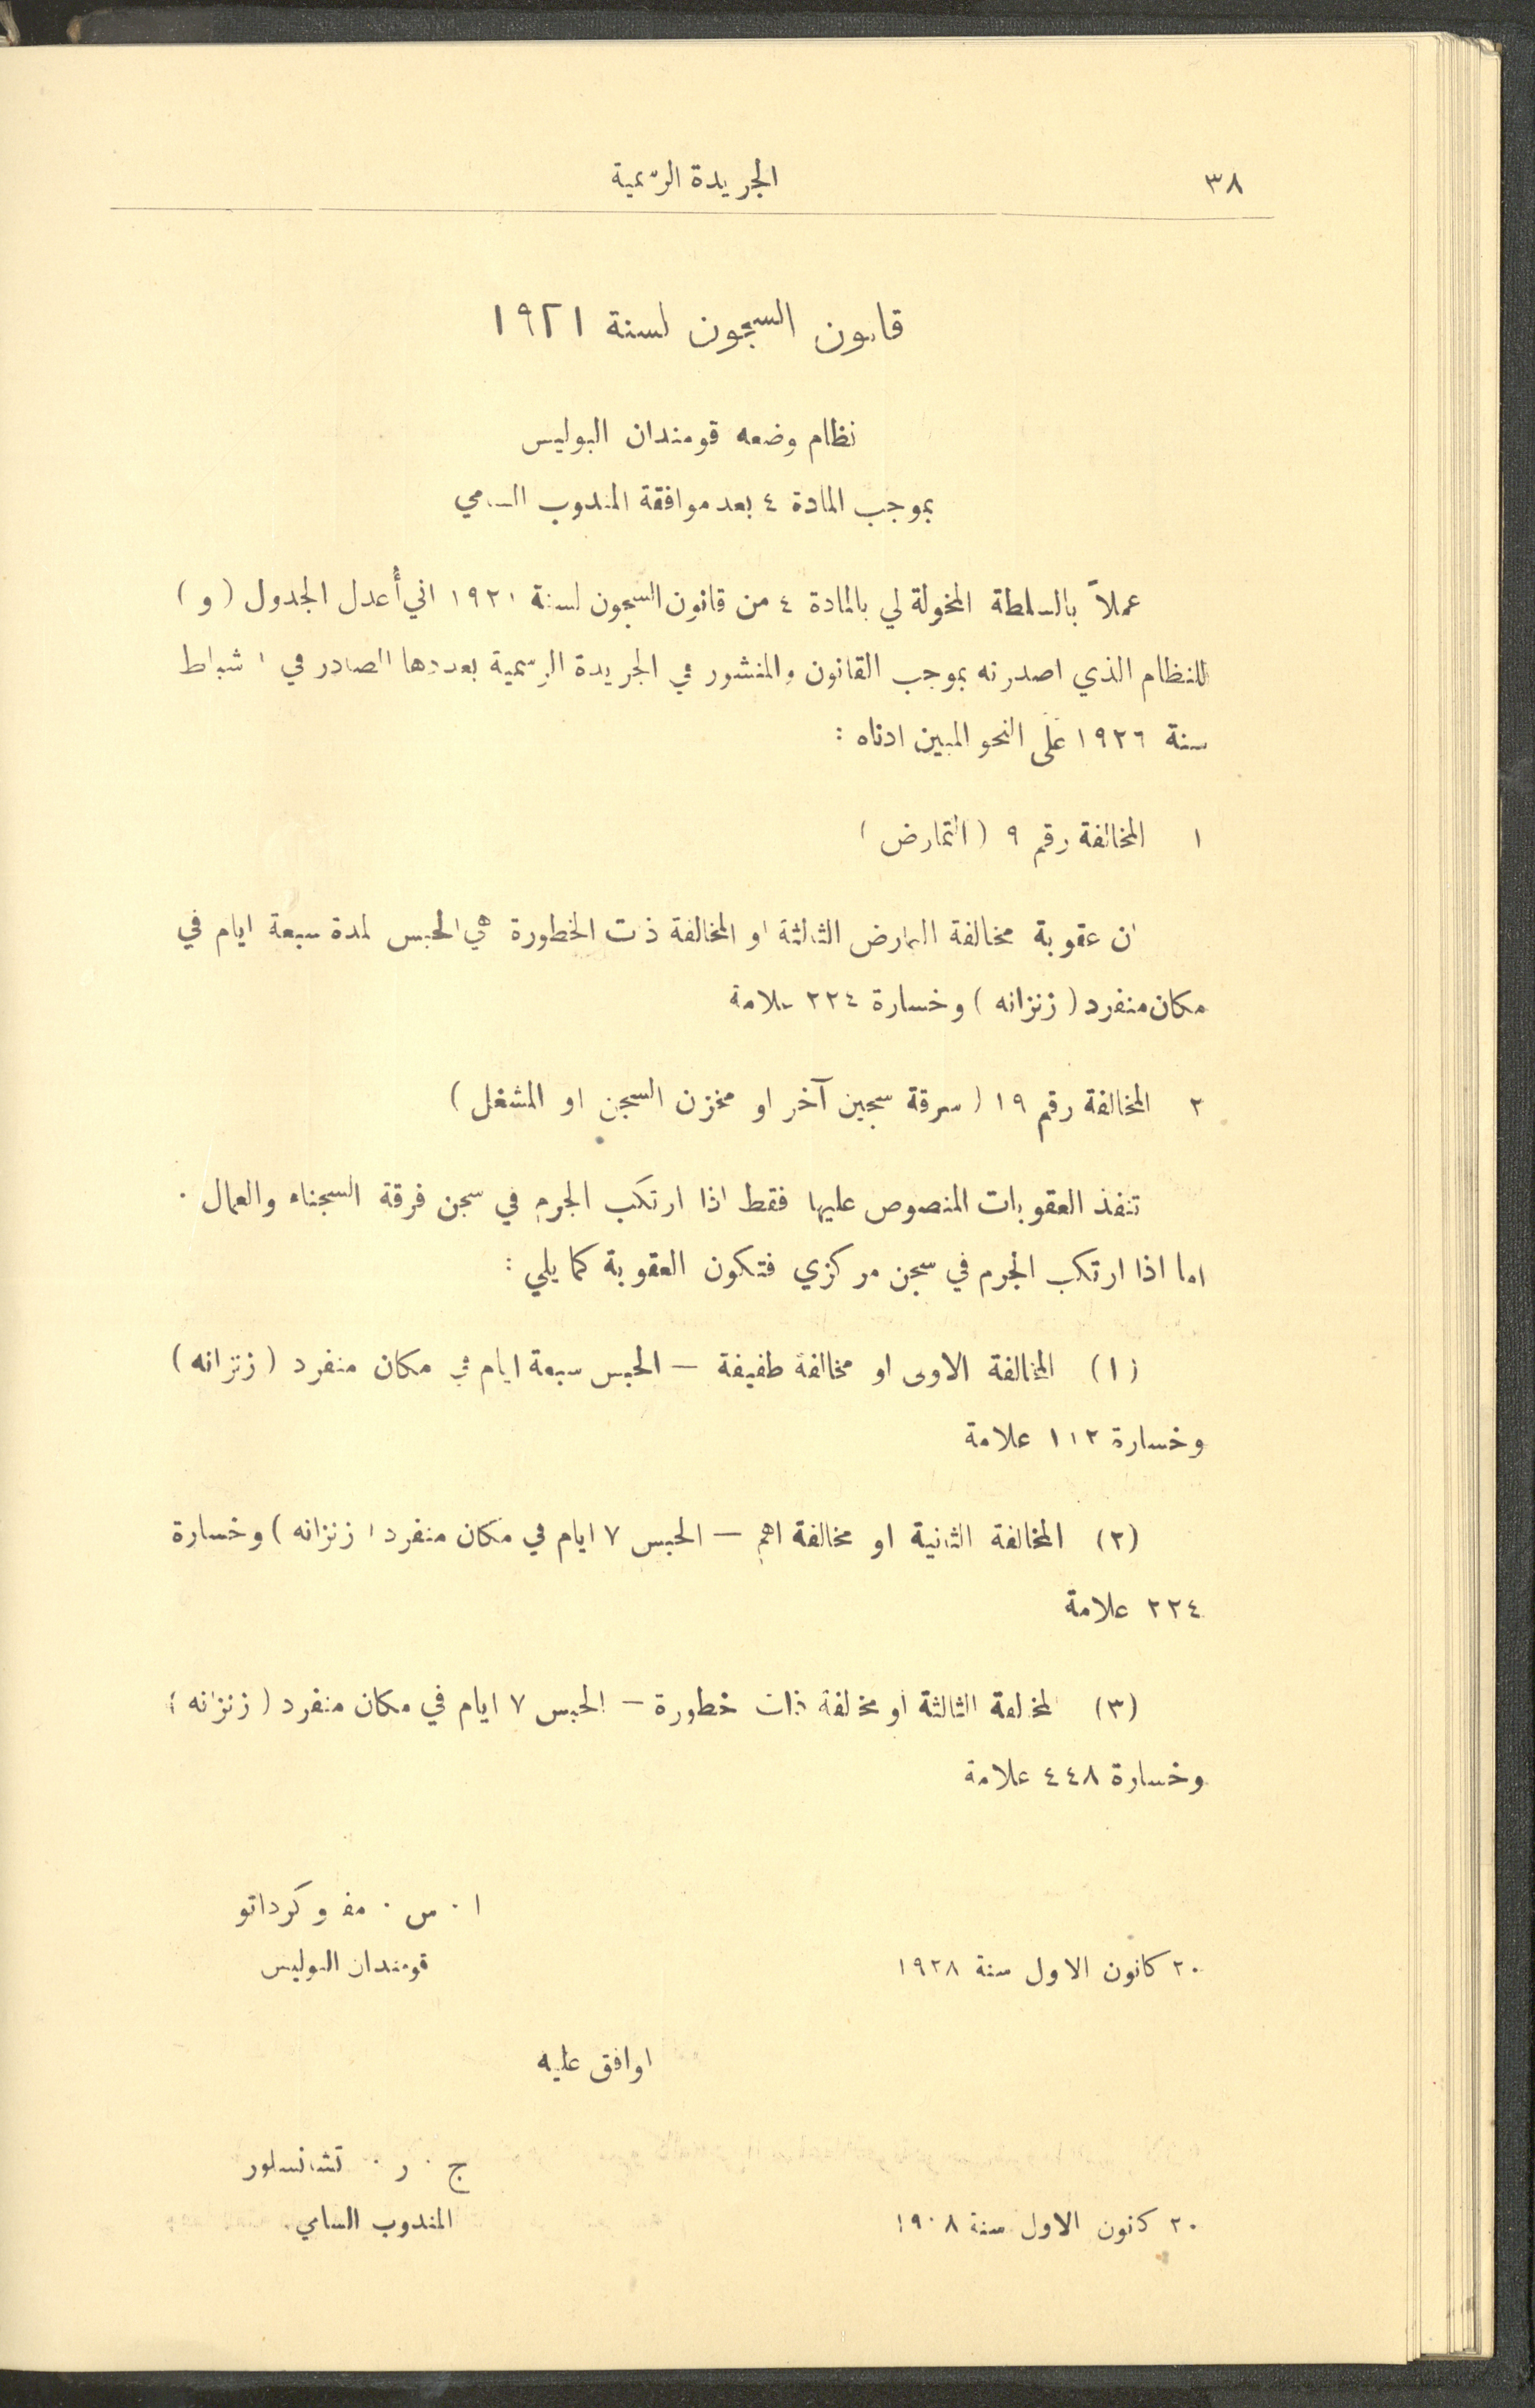 ٣٨
الجريدة الرسمية
قانون السجون لسنة ١٩٢١
نظام وضعه قومندان البوليس
بموجب المادة ٤ بعد موافقة المندوب السامي
عملاً بالسلطة المخولة لي بالمادة ٤ من قانون السجون لسنة ١٩٢١ اني أعدل الجدول (و)
للنظام الذي اصدرته بموجب القانون والمنشور في الجريدة الرسمية بعددها الصادر في ١ شباط
سنة ١٩٢٦ على النحو المبين ادناه :
١ المخالفة رقم ٩ (التمارض)
ان عقوبة مخالفة التمارض الثالثة او المخالفة ذت الخطورة هي الحبس لمدة سبعة ايام في
مكان منفرد (زنزانه) وخسارة ٢٢٤ علامة
٢ المخالفة رقم ١٩ (سرقة سجين آخر او مخزن السجن او المشغل)
تنفذ العقوبات المنصوص عليها فقط اذا ارتكب الجرم في سجن فرقة السجناء والعمال .
اما اذا ارتكب الجرم في سجن مركزي فتكون العقوبة كما يلي :
(١) المخالفة الاولى او مخالفة طفيفة — الحبس سبعة ايام في مكان منفرد (زنزانه)
وخسارة ١١٢ علامة
(٢) المخالفة الثانية او مخالفة اهم — الحبس ٧ ايام في مكان منفرد (زنزانه) وخسارة
٢٢٤ علامة
(٣) المخالفة الثالثة او مخالفة ذات خطورة — الحبس ٧ ايام في مكان منفرد (زنزانه)
وخسارة ٤٤٨ علامة
ا . س . مفروكرداتو
٢٠ كانون الاول سنة ١٩٢٨
قومندان البوليس
اوافق عليه
ج . ر . تشانسلور
٢٠ كانون الاول سنة ١٩٠٨
المندوب السامي